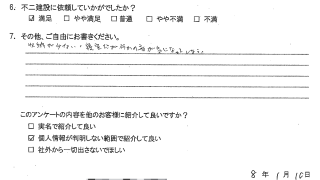 6. 不二建設に依頼していかがでしたか？
☑ 満足 □ やや満足 □ 普通 □ やや不満 □ 不満
7. その他、ご自由にお書きください。
収納が少ない・
このアンケートの内容を他のお客様に紹介して良いですか？
□ 実名で紹介して良い
☑ 個人情報が判明しない範囲で紹介して良い
□ 社外から一切出さないでほしい
8年 1月 10日